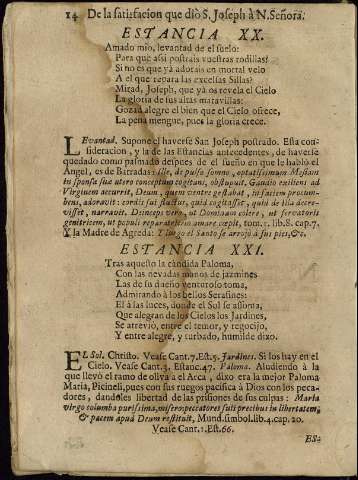 14 De la satisfacion que diò S. Joseph à N. Señora.
ESTANCIA XX.
Amado mio, levantad de el suelo:
Para que assi postrais vuestras rodillas?
Si no es que yà adorais en mortal velo
A el que repara las excelsas Sillas?
Mirad, Joseph, que yà os revela el Cielo
La gloria de sus altas maravillas:
Gozad alegre el bien que el Cielo ofrece,
La pena mengue, pues la gloria crece.
LEvantad. Supone el haverse San Joseph postrado. Esta con-
sideracion, y la de las Estancias antecedentes, de haverse
quedado como pasmado despues de el sueño en que le hablò el
Angel, es de Barradas: Ille, de pulso somno, optatissimum Messiam
in sponsæ suæ utero conceptum cogitans, obstupuit. Gaudio exiliens ad
Virginem accurrit, Deum, quem ventre gestabat, in faciem procum-
bens, adoravit: cordis sui fluctus, quid cogitasset, quid de illa decre-
visset, narravit. Deinceps verò, ut Dominum colere, ut servatoris
genitricem, ut populi reparatricem amare cœpit, tom. 1. lib. 8. cap. 7.
Y la Madre de Agreda: Y luego el Santo se arrojò à sus pies, &c.
ESTANCIA XXI.
Tras aquesto la càndida Paloma,
Con las nevadas manos de jazmines
Las de su dueño venturoso toma,
Admirando à los bellos Serafines:
El à las luces, donde el Sol se assoma,
Que alegran de los Cielos los Jardines,
Se atreviò, entre el temor, y regocijo,
Y entre alegre, y turbado, humilde dixo.
EL Sol. Christo. Vease Cant. 7. Est. 5. Jardines. Si los hay en el
Cielo. Vease Cant. 3. Estanc. 47. Paloma. Aludiendo à la
que llevò el ramo de oliva à el Arca, dixo era la mejor Paloma
Maria, Picineli, pues con sus ruegos pacifica à Dios con los peca-
dores, dandoles libertad de las prisiones de sus culpas: Maria
virgo columba purissima, miseros peccatores suis precibus in libertatem,
& pacem apud Deum restituit, Mund. simbol. lib. 4. cap. 20.
Vease Cant. 1. Est. 66.
ES-